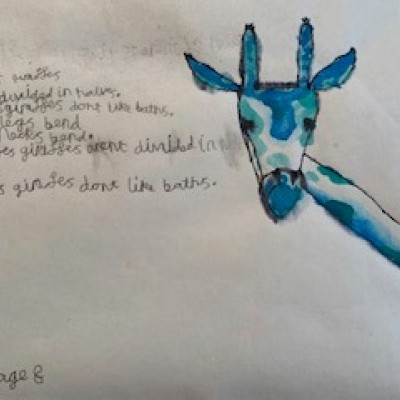 divided in halves.
giraffes dont like baths.
legs bend
necks bend.
es giraffes arent divided in
s giraffes dont like baths.
age 8